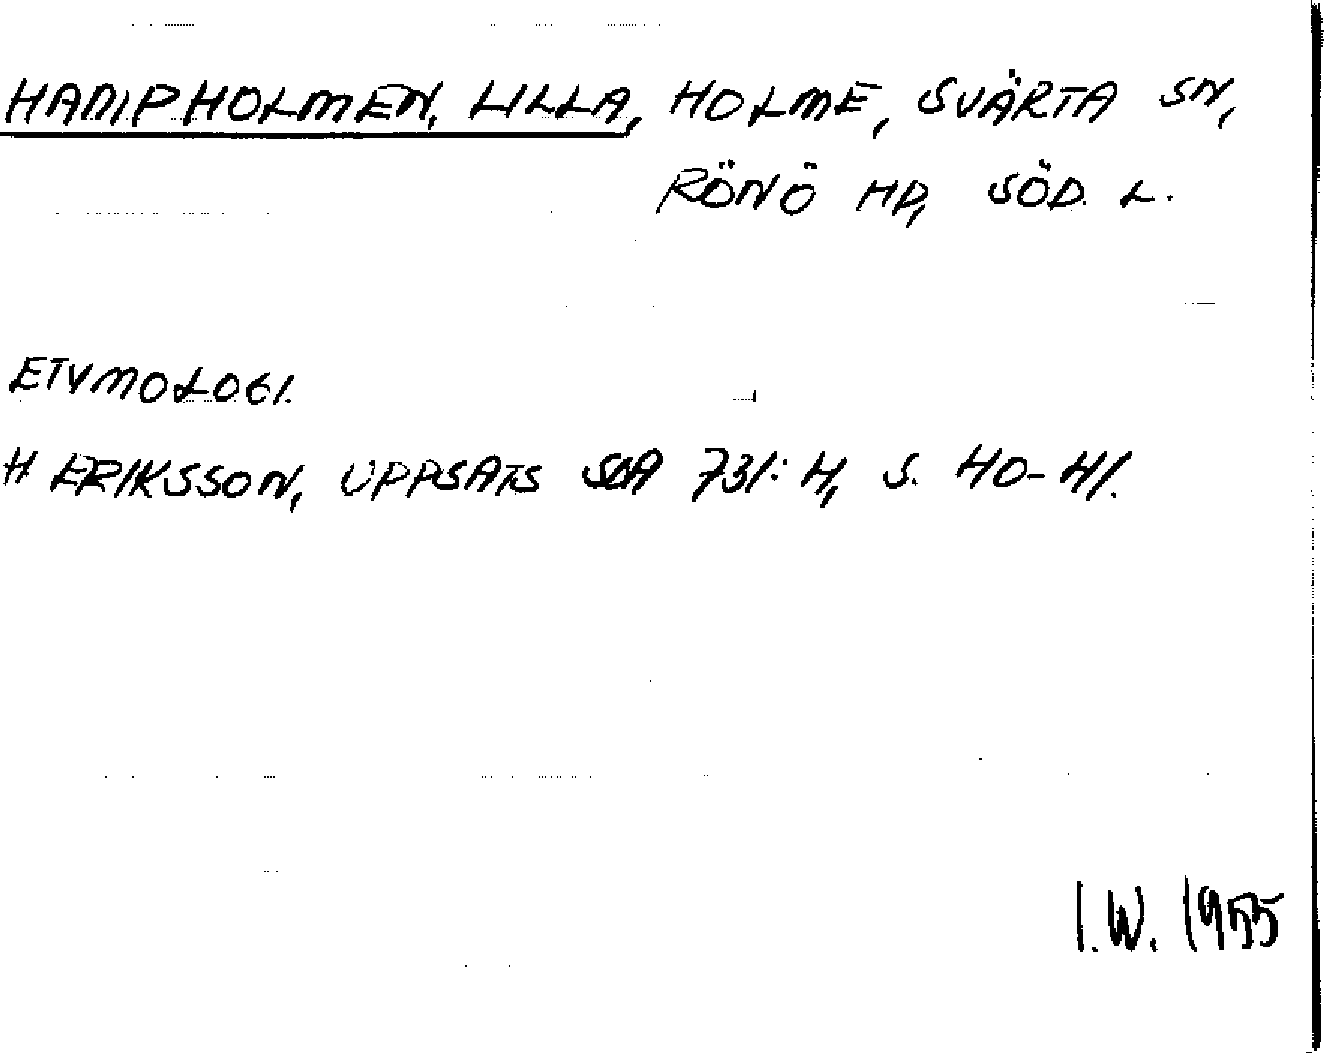 HAMPHOLMEN, LILLA, HOLME, SVÄRTA SN,
RÖNÖ HD, SÖD. L.
ETYMOLOGI.
H ERIKSSON, UPPSATS SOA 731: H, S. 40-41.
I.W. 1955